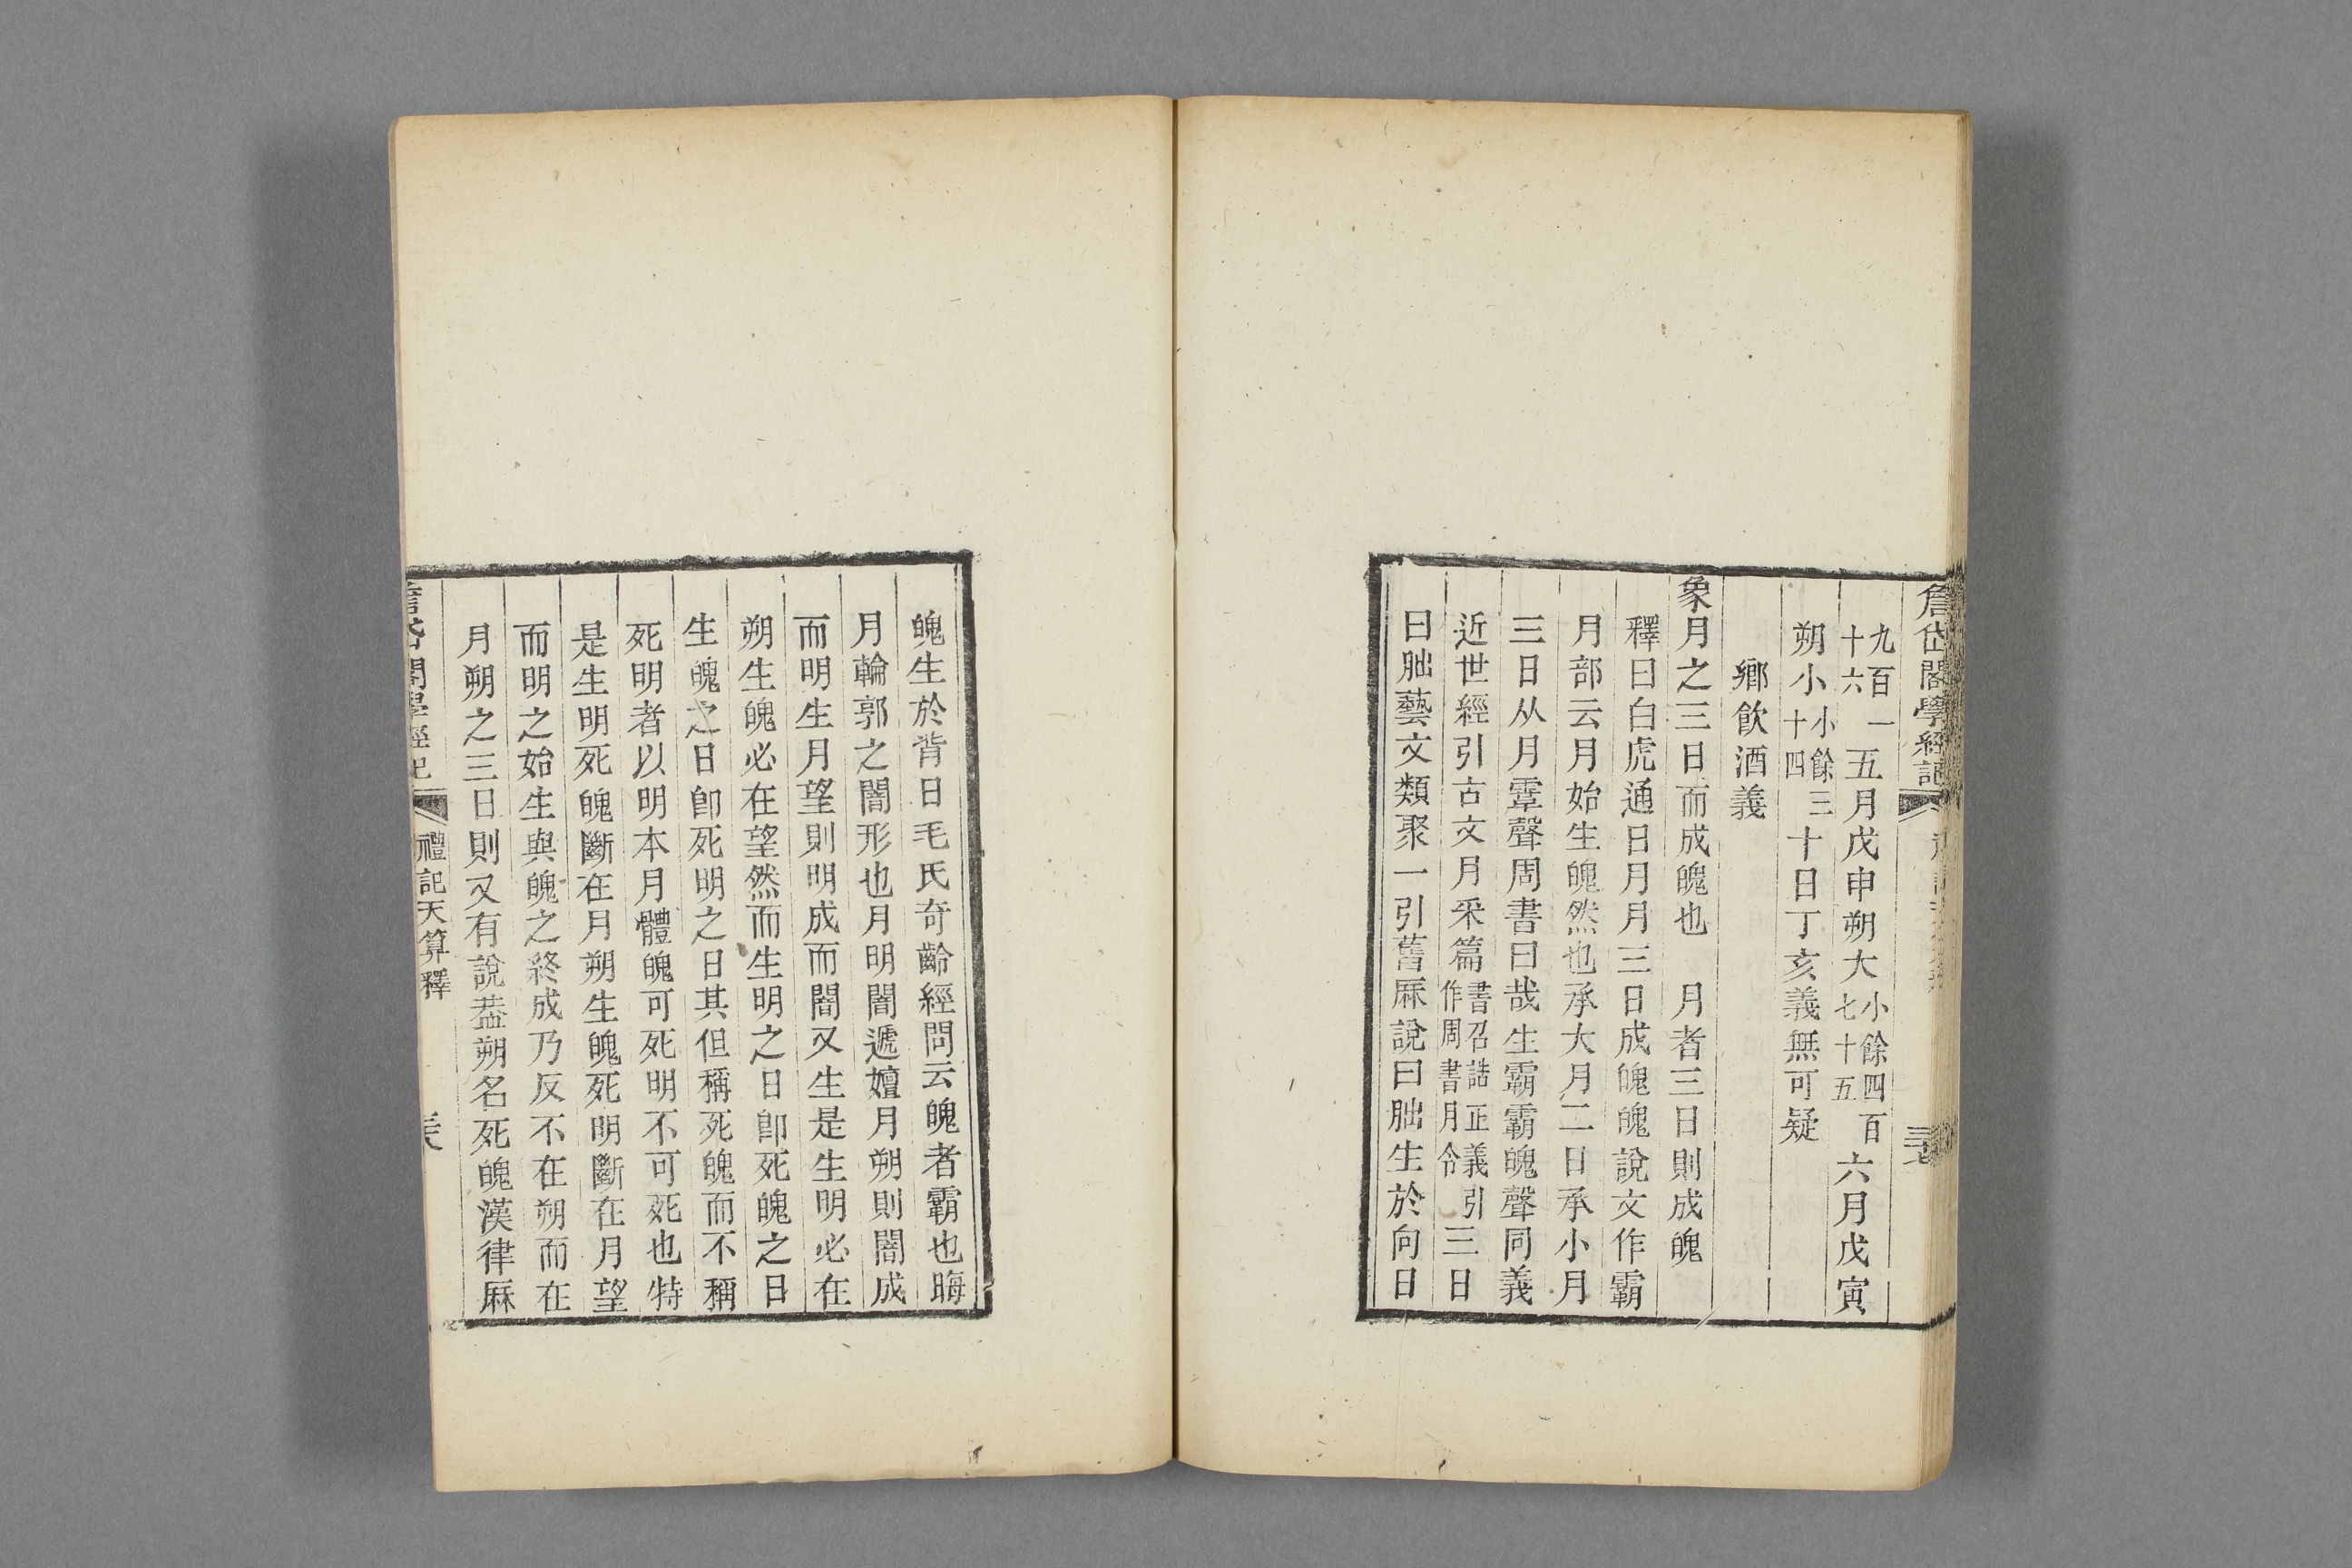 詹岱閣學經記
九百一十六五月戊申朔大小餘四百七十五六月戊寅
朔小小餘三十四十日丁亥義無可疑
鄉飲酒義
象月之三日而成魄也　月者三日則成魄
釋曰白虎通日月月三日成魄魄說文作霸
月部云月始生魄然也承大月二日承小月
三日从月䨣聲周書曰哉生霸霸魄聲同義
近世經引古文月采篇書召誥正義引作周書月令三日
曰朏藝文類聚一引舊厤說曰朏生於向日
魄生於背日毛氏奇齡經問云魄者霸也晦
月輪郭之闇形也月明闇遞嬗月朔則闇成
而明生月望則明成而闇又生是生明必在
朔生魄必在望然而生明之日卽死魄之日
生魄之日卽死明之日其但稱死魄而不稱
死明者以明本月體魄可死明不可死也特
是生明死魄斷在月朔生魄死明斷在月望
而明之始生與魄之終成乃反不在朔而在
月朔之三日則又有說葢朔名死魄漢律厤
詹岱閣學經記　禮記天算釋